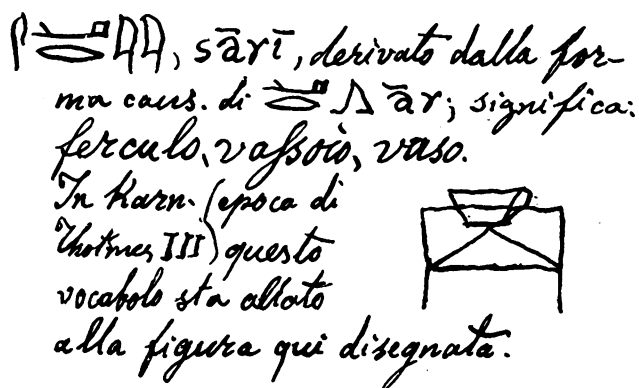 𓋴𓂝𓂋𓇋𓇋, sā̔rī, derivato dalla for-
ma caus. di 𓂝𓂋𓂻 ār; significa:
ferculo, vaſsoio, vaso.
In Karn. (epoca di
Thotmes III) questo
vocabolo sta allato
alla figura qui disegnata.